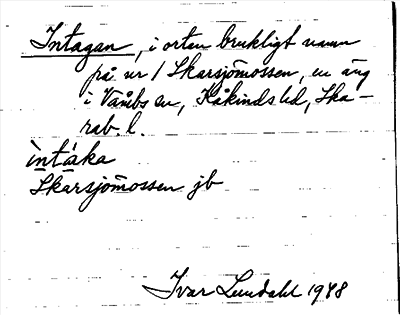 Intagan, i orten brukligt namn
på nr 1 Skarsjömossen, en äng
i Våmbs sn, Kåkinds hd, Ska-
rab. l.
ìntáka
Skarsjömossen jb
Ivar Lundahl 1948